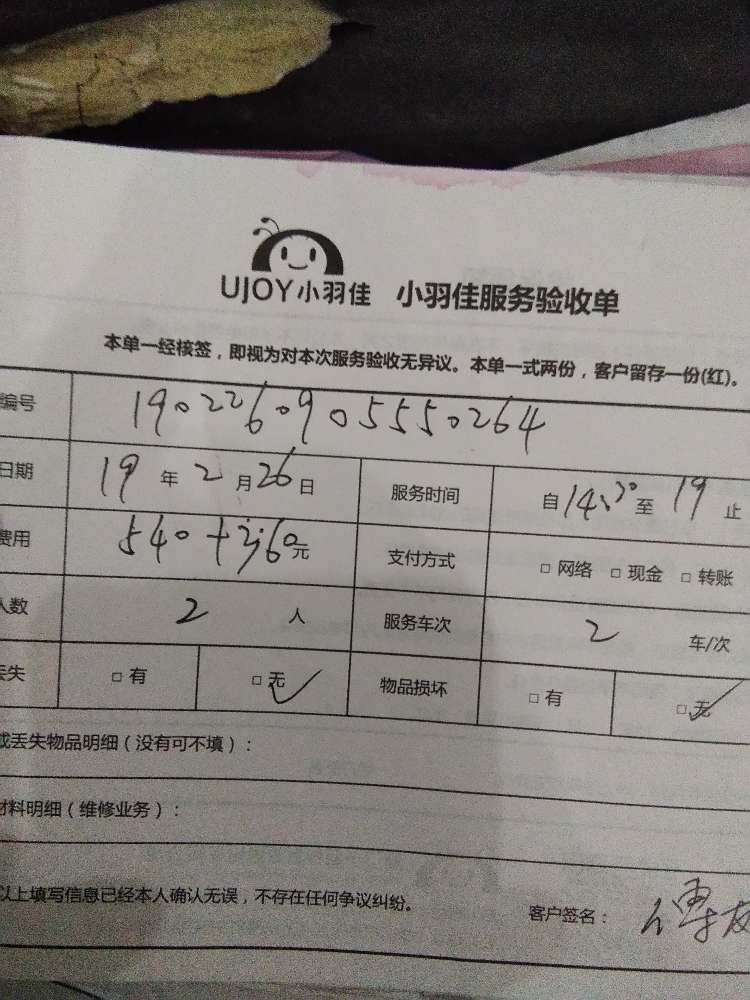 UJOY小羽佳 小羽佳服务验收单
本单一经核签，即视为对本次服务验收无异议。本单一式两份，客户留存一份(红)。
编号 1902260905550264
日期 19年2月26日 服务时间 自14:30至19止
费用 540+360元 支付方式 □网络 □现金 □转账
人数 2人 服务车次 2车/次
丢失 □有 □无✓ 物品损坏 □有 □无✓
或丢失物品明细（没有可不填）：
材料明细（维修业务）：
以上填写信息已经本人确认无误，不存在任何争议纠纷。
客户签名：